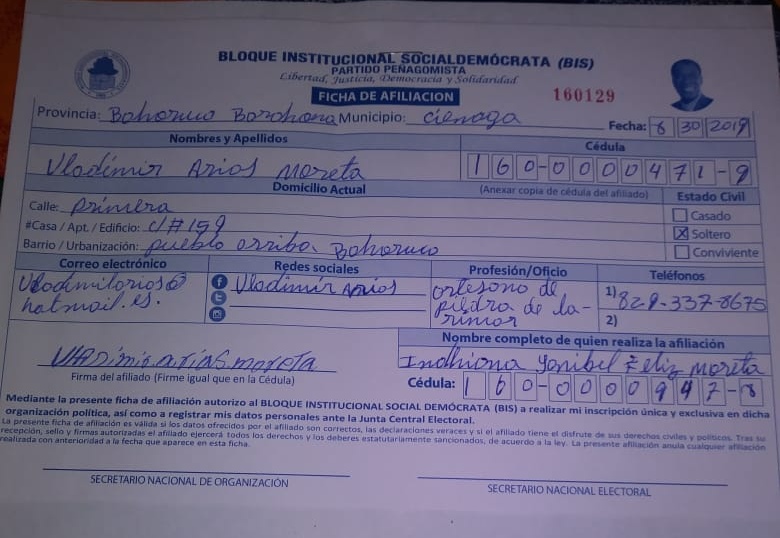 BLOQUE INSTITUCIONAL SOCIALDEMÓCRATA (BIS)
PARTIDO PEÑAGOMISTA
Libertad, Justicia, Democracia y Solidaridad
FICHA DE AFILIACION
160129
Provincia: Bahoruco Barahona Municipio: ciénaga Fecha: 6 30 2019
Nombres y Apellidos Cédula
Vladimir Arias Moreta 160-0000471-9
Domicilio Actual (Anexar copia de cédula del afiliado) Estado Civil
Calle: primera Casado
#Casa / Apt. / Edificio: c/# 159 X Soltero
Barrio / Urbanización: pueblo arriba Bahoruco Conviviente
Correo electrónico Redes sociales Profesión/Oficio Teléfonos
Vladimilarias@ Vladimir Arias artesano de 1) 829-337-8675
hotmail.es. piedra de la-
rimar 2)
Nombre completo de quien realiza la afiliación
Vladimir arias moreta Indhiana Yanibel Feliz Moreta
Firma del afiliado (Firme igual que en la Cédula) Cédula: 160-0000947-8
Mediante la presente ficha de afiliación autorizo al BLOQUE INSTITUCIONAL SOCIAL DEMÓCRATA (BIS) a realizar mi inscripción única y exclusiva en dicha
organización política, así como a registrar mis datos personales ante la Junta Central Electoral.
La presente ficha de afiliación es válida si los datos ofrecidos por el afiliado son correctos, las declaraciones veraces y si el afiliado tiene el disfrute de sus derechos civiles y políticos. Tras su
recepción, sello y firmas autorizadas el afiliado ejercerá todos los derechos y los deberes estatutariamente sancionados, de acuerdo a la ley. La presente afiliación anula cualquier afiliación
realizada con anterioridad a la fecha que aparece en esta ficha.
SECRETARIO NACIONAL DE ORGANIZACIÓN SECRETARIO NACIONAL ELECTORAL